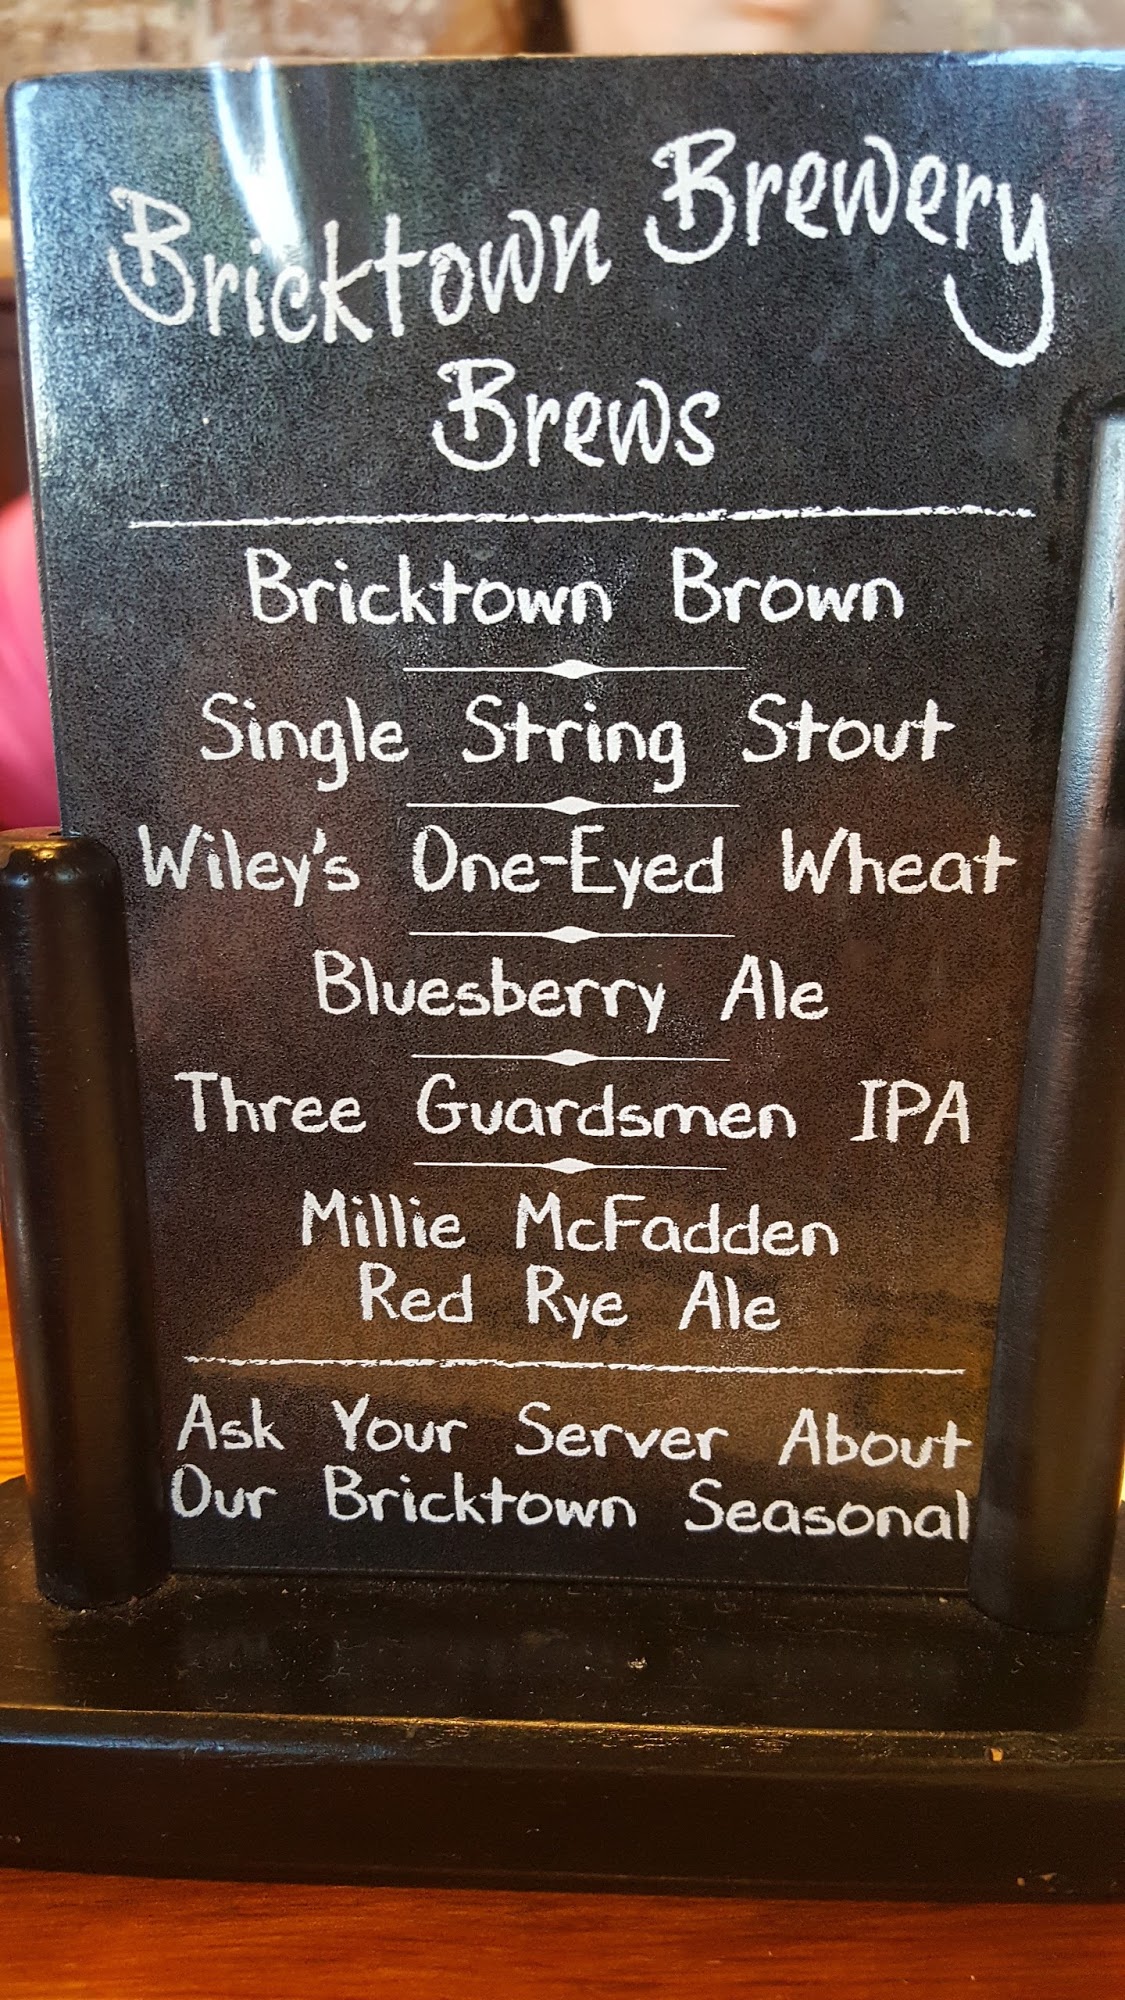 Bricktown Brewery
Brews
Bricktown Brown
Single String Stout
Wiley's One-Eyed Wheat
Bluesberry Ale
Three Guardsmen IPA
Millie McFadden
Red Rye Ale
Ask Your Server About
Our Bricktown Seasonal